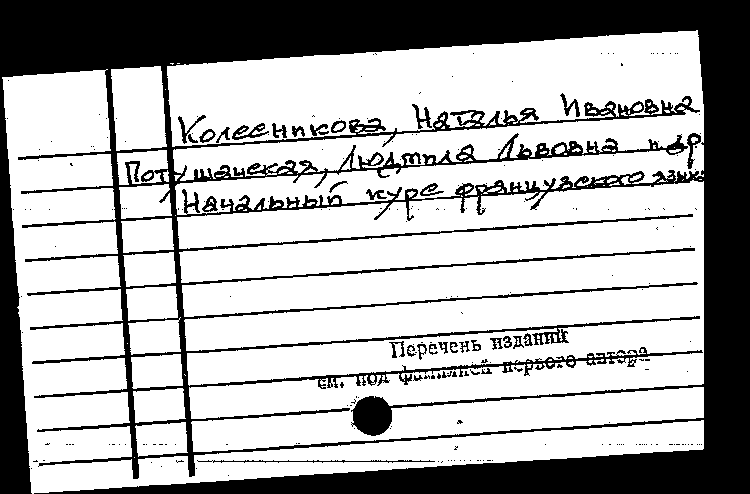 Колесникова, Наталья Ивановна
Потушанская, Людмила Львовна и др.
Начальный курс французского языка
Перечень изданий
см. под фамилией первого автора